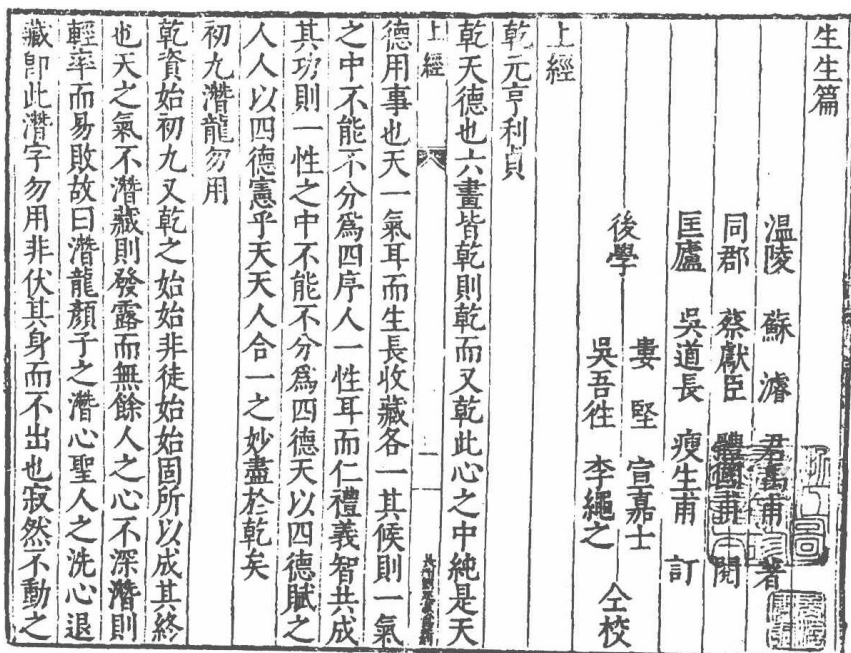 生生篇
溫陵　蘇濬　君禹甫　著
同郡　蔡獻臣　體國甫　閱
匡廬　吳道長　瘦生甫　訂
後學　婁堅　宣嘉士
吳吾徃　李繩之　仝校
上經
乾元亨利貞
乾天德也六畫皆乾則乾而又乾此心之中純是天
上經　一
德用事也天一氣耳而生長收藏各一其候則一氣
之中不能不分爲四序人一性耳而仁禮義智共成
其功則一性之中不能不分爲四德天以四德賦之
人人以四德憲乎天天人合一之妙盡於乾矣
初九潛龍勿用
乾資始初九又乾之始始非徒始始固所以成其終
也天之氣不潛藏則發露而無餘人之心不深潛則
輕率而易敗故曰潛龍顏子之潛心聖人之洗心退
藏卽此潛字勿用非伏其身而不出也寂然不動之